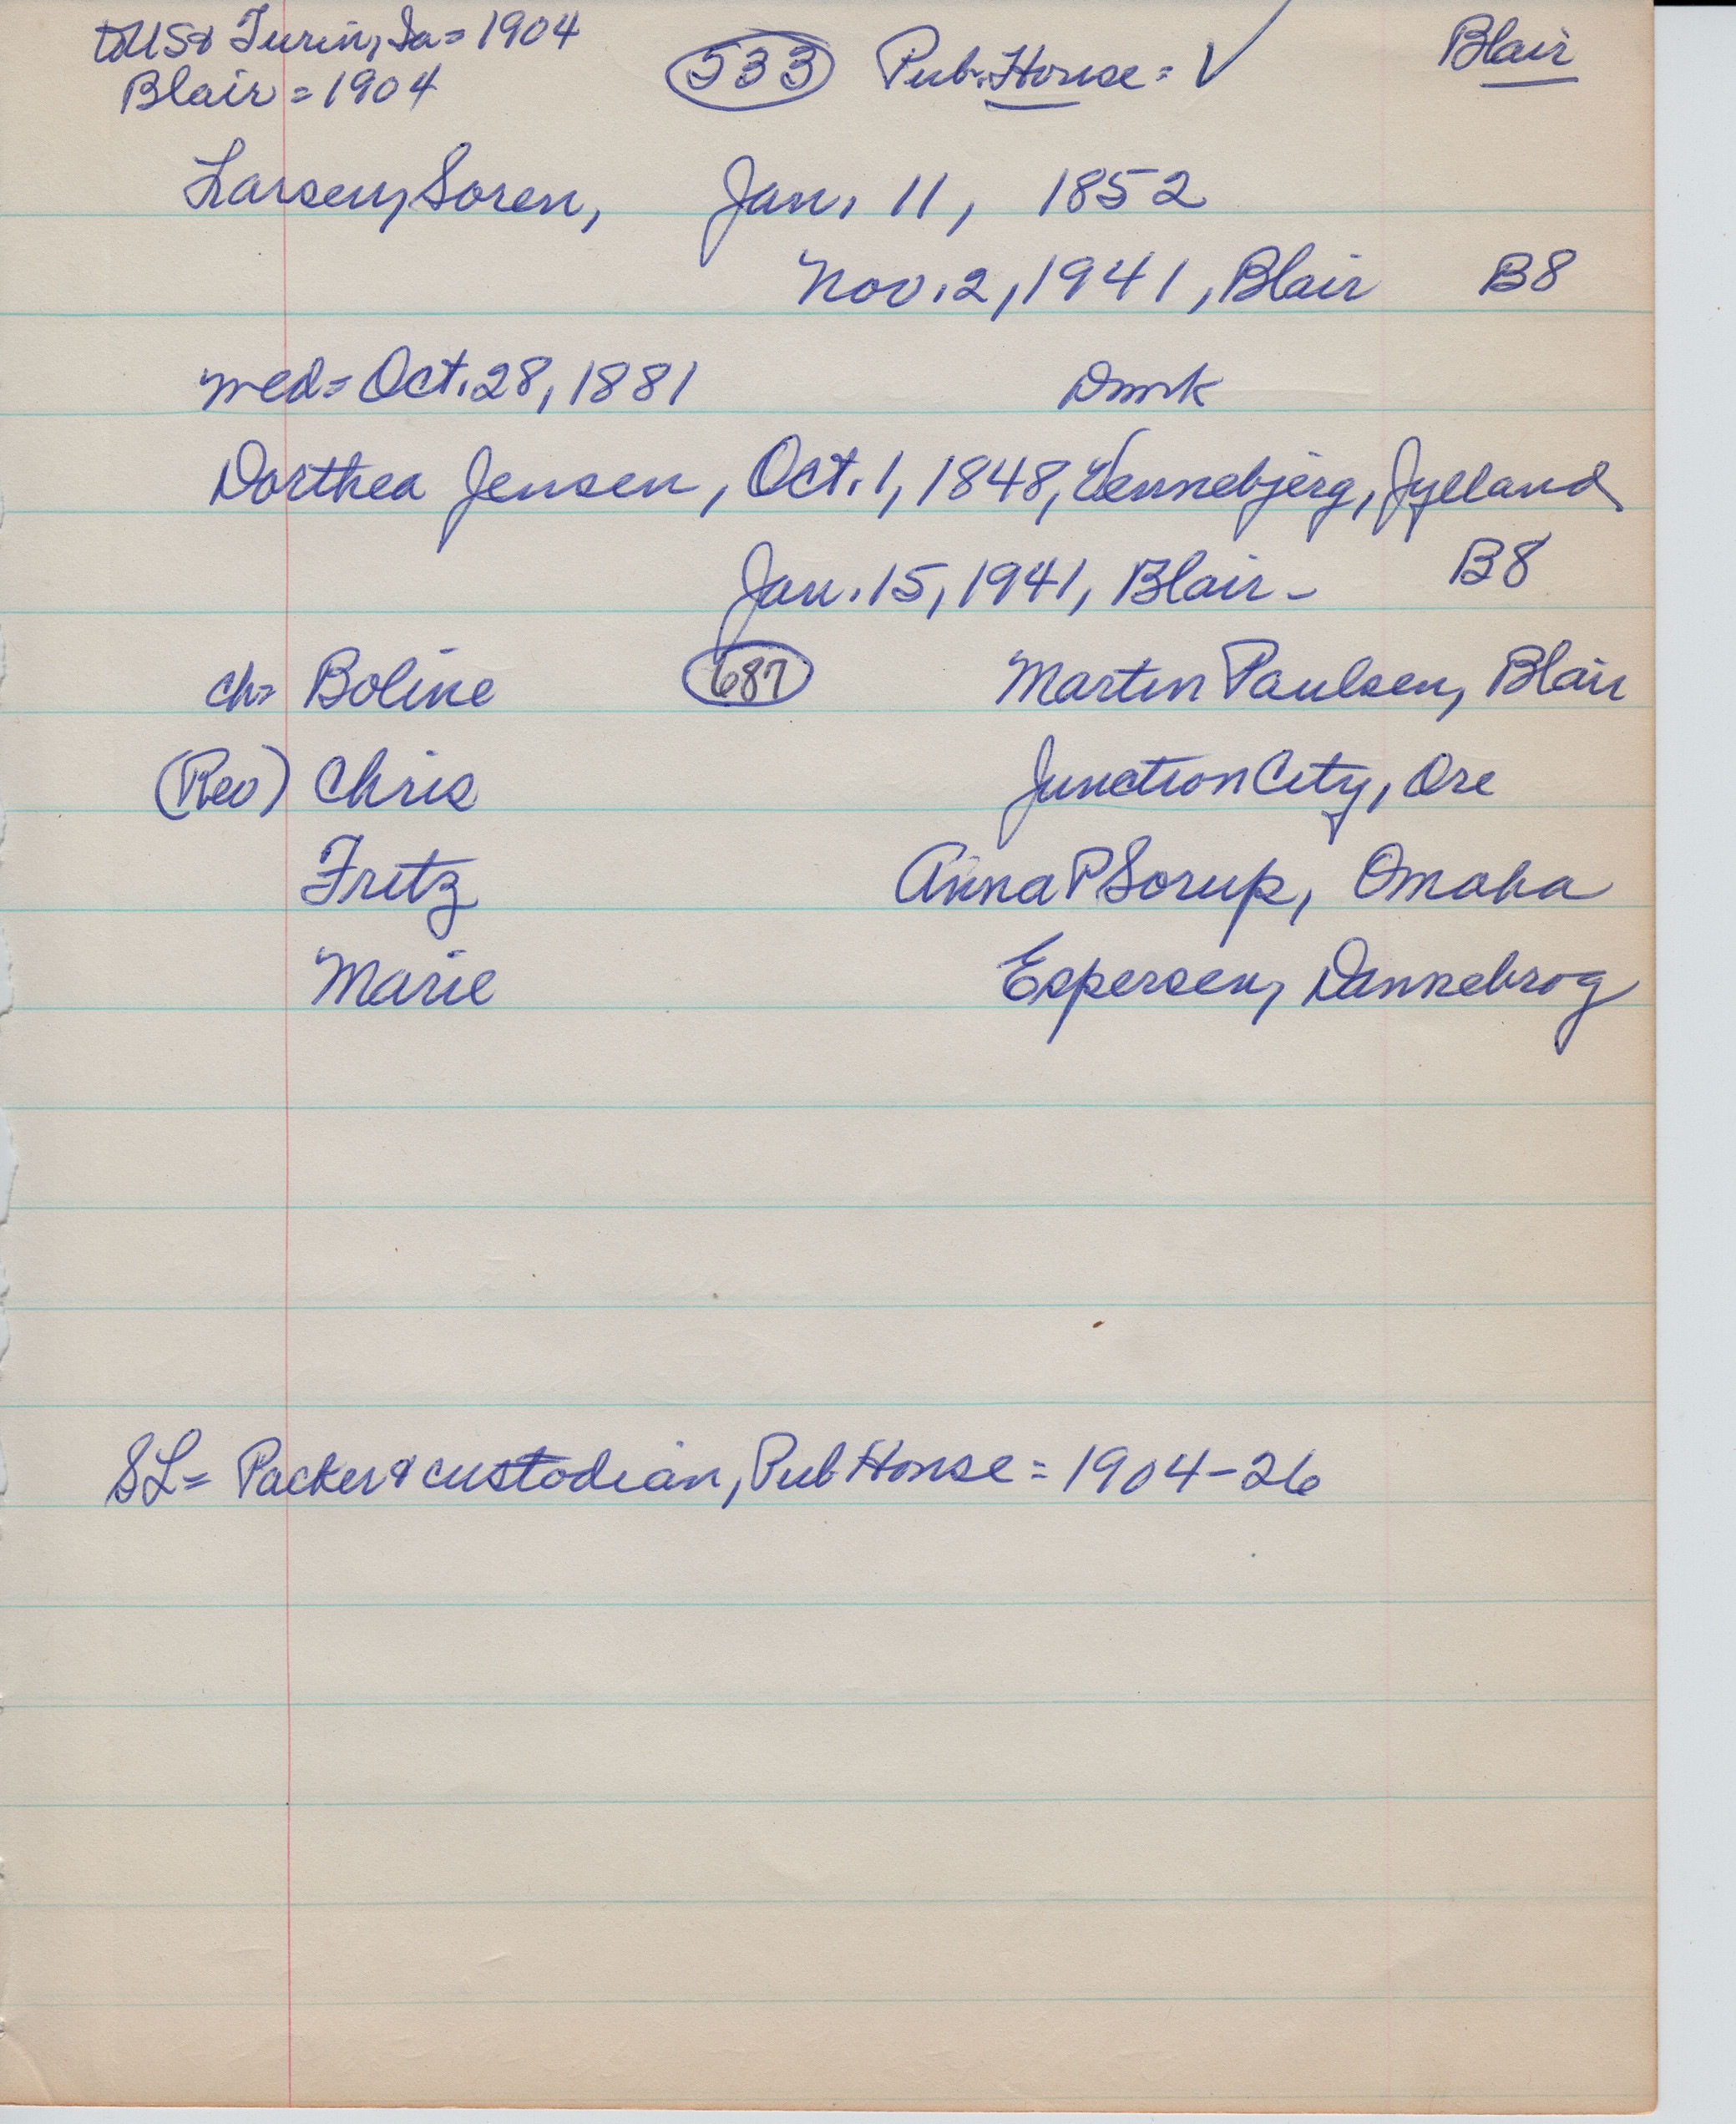 to US & Turin, Ia = 1904
Blair = 1904
533 Pub. House = ✓ Blair
Larsen, Soren, Jan. 11, 1852
Nov. 2, 1941, Blair B8
wed = Oct. 28, 1881 Dmrk
Dorthea Jensen, Oct. 1, 1848, Vennebjerg, Jylland
Jan. 15, 1941, Blair - B8
ch = Boline 687 Martin Paulsen, Blair
(Rev) Chris Junction City, Ore
Fritz Anna P Sorup, Omaha
Marie Espersen, Dannebrog
SL = Packer & custodian, Pub House = 1904-26